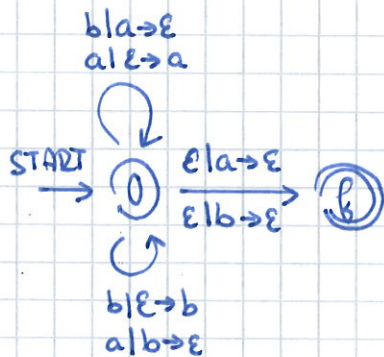 b|a→ε
a|ε→a
START
0
ε|a→ε
ε|b→ε
b|ε→b
a|b→ε